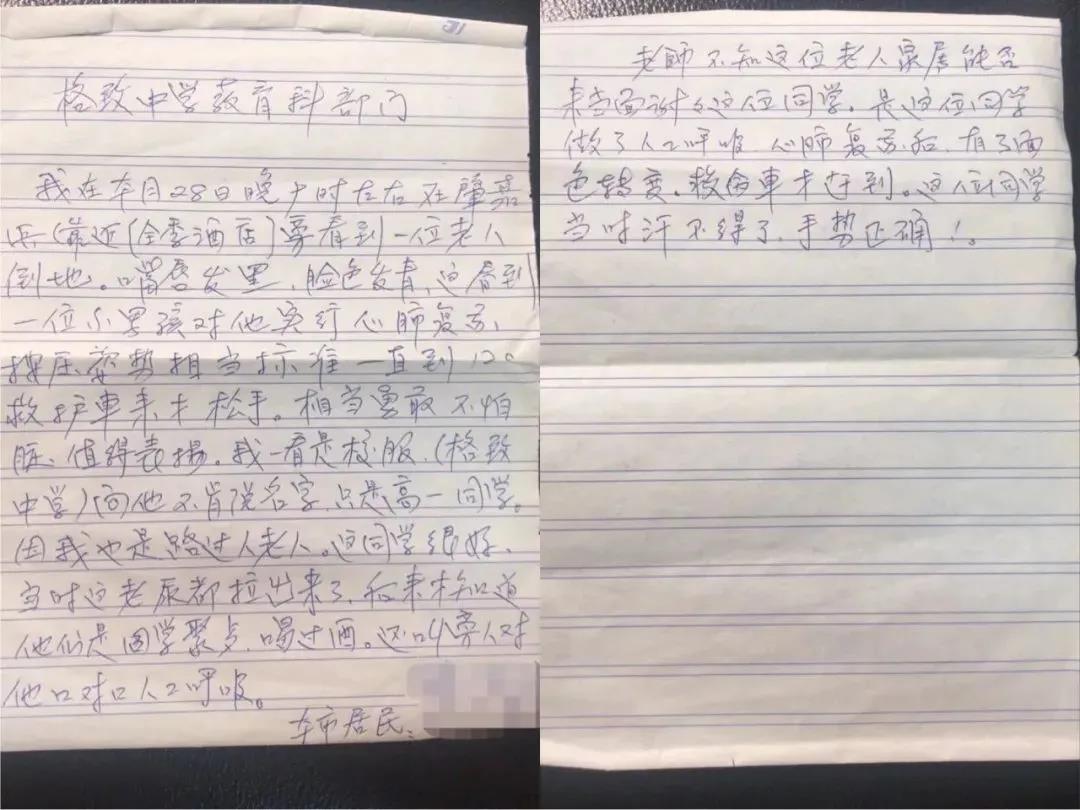 格致中学教育科部门
我在本月28日晚 时左右在肇嘉
浜(靠近[全季酒店]旁看到一位老人
倒地。嘴唇发黑、脸色发青、这看到
一位小男孩对他实行心肺复苏、
按压姿势相当标准一直到120
救护車来才松手。相当勇敢不怕
脏、值得表扬。我一看是校服、(格致
中学)问他不肯说名字、只是高一同学。
因我也是路过人老人。这同学很好、
当时这老尿都拉出来了、后来才知道
他们是同学聚 、喝过酒。还叫旁人对
他口对口人工呼吸。
本市居民:
老師不知这位老人家属能否
来当面谢谢这位同学、是这位同学
做了人工呼吸、心肺复苏后、有了面
色转变、救命車才赶到。这位同学
当时汗不得了、手势正确!。